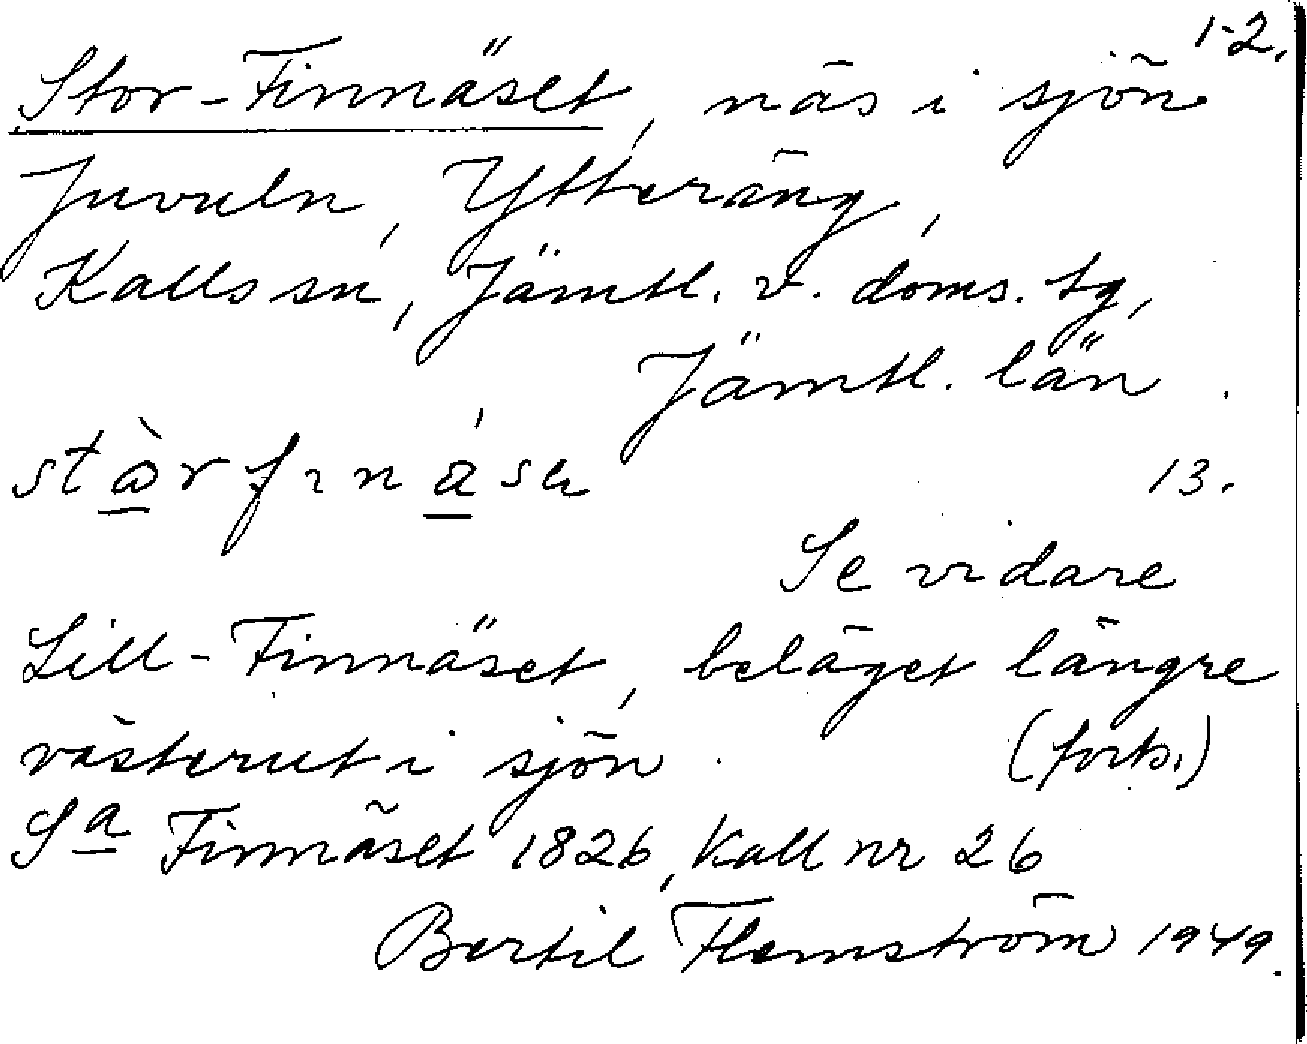 1-2.
Stor-Finnäset, näs i sjön
Juvuln, Ytteräng,
Kalls sn, Jämtl. v. doms. tg,
Jämtl. län.
13.
Se vidare
Lill-Finnäset, beläget längre
västerut i sjön. (forts.)
Sa Finnäset 1826, Kall nr 26
Bertil Flemström 1949.